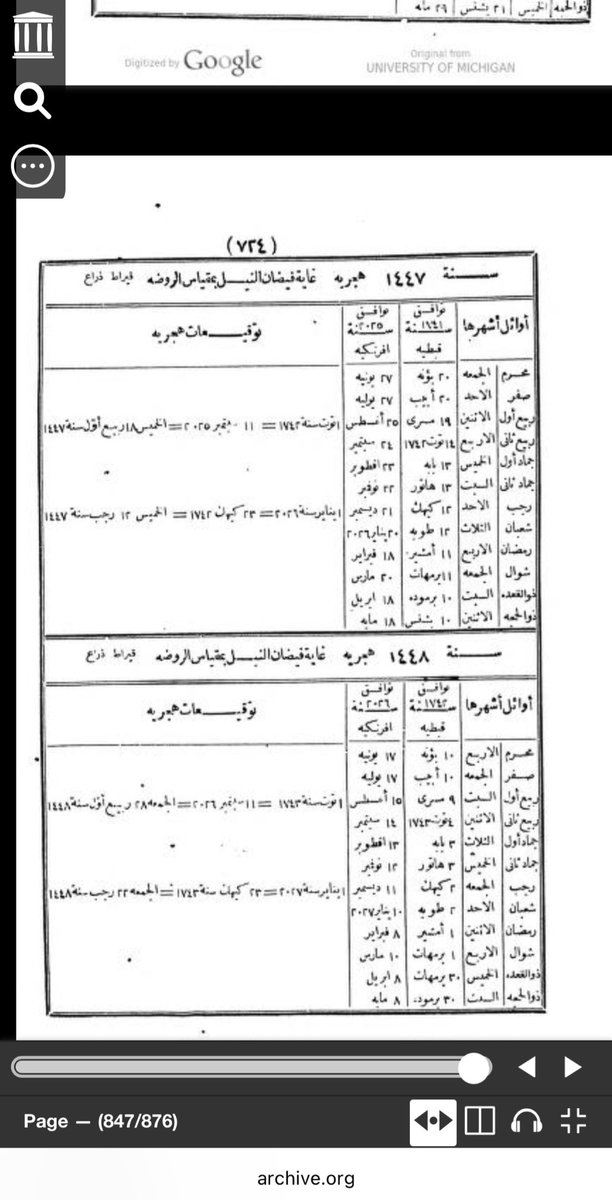 ذوالحجه الخميس ٢١ بشنس ٢٩ مايه
Digitized by Google
Original from
UNIVERSITY OF MICHIGAN
(٧٢٤)
سنة ١٤٤٧ هجريه غاية فيضان النيل بمقياس الروضه قيراط ذراع
أوائل أشهرها توافق سنة ١٧٤١ قبطيه توافق سنة ٢٠٢٥ افرنكيه توقيعات هجريه
محرم الجمعه ٢٠ بؤنه ٢٧ يونيه
صفر الاحد ٢٠ أبيب ٢٧ يوليه
ربيع أول الاثنين ١٩ مسرى ٢٥ أغسطس ١ توت سنة ١٧٤٢ = ١١ سبتمبر ٢٠٢٥ = الخميس ١٨ ربيع أول سنة ١٤٤٧
ربيع ثانى الاربع ١٤ توت ١٧٤٢ ٢٤ سبتمبر
جماد أول الخميس ١٣ بابه ٢٣ اقطوبر
جماد ثانى السبت ١٣ هاتور ٢٢ نوفبر
رجب الاحد ١٢ كيهك ٢١ ديسمبر ١ يناير سنة ٢٠٢٦ = ٢٣ كيهك ١٧٤٢ = الخميس ١٢ رجب سنة ١٤٤٧
شعبان الثلاث ١٢ طوبه ٢٠ يناير ٢٠٢٦
رمضان الاربع ١١ أمشير ١٨ فبراير
شوال الجمعه ١١ برمهات ٢٠ مارس
ذوالقعده السبت ١٠ برموده ١٨ ابريل
ذوالحجه الاثنين ١٠ بشنس ١٨ مايه
سنة ١٤٤٨ هجريه غاية فيضان النيل بمقياس الروضه قيراط ذراع
أوائل أشهرها توافق سنة ١٧٤٢ قبطيه توافق سنة ٢٠٢٦ افرنكيه توقيعات هجريه
محرم الاربع ١٠ بؤنه ١٧ يونيه
صفر الجمعه ١٠ أبيب ١٧ يوليه
ربيع أول السبت ٩ مسرى ١٥ أغسطس ١ توت سنة ١٧٤٣ = ١١ سبتمبر ٢٠٢٦ = الجمعه ٢٨ ربيع أول سنة ١٤٤٨
ربيع ثانى الاثنين ٤ توت ١٧٤٣ ١٤ سبتمبر
جماد أول الثلاث ٣ بابه ١٣ اقطوبر
جماد ثانى الخميس ٣ هاتور ١٢ نوفبر
رجب الجمعه ٢ كيهك ١١ ديسمبر ١ يناير سنة ٢٠٢٧ = ٢٣ كيهك سنة ١٧٤٣ = الجمعه ٢٢ رجب سنة ١٤٤٨
شعبان الاحد ٢ طوبه ١٠ يناير ٢٠٢٧
رمضان الاثنين ١ أمشير ٨ فبراير
شوال الاربع ١ برمهات ١٠ مارس
ذوالقعده الخميس ٣٠ برمهات ٨ ابريل
ذوالحجه السبت ٣٠ برموده ٨ مايه
Page — (847/876)
archive.org